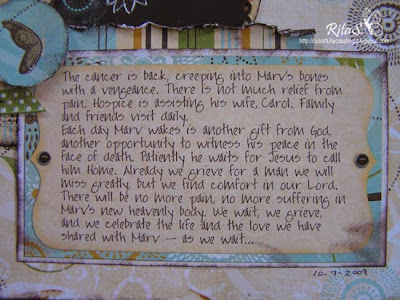 RitaS.
The cancer is back, creeping into Marv's bones
with a vengeance. There is not much relief from
pain. Hospice is assisting his wife, Carol. Family
and friends visit daily.
Each day Marv wakes is another gift from God,
another opportunity to witness his peace in the
face of death. Patiently he waits for Jesus to call
him Home. Already we grieve for a man we will
miss greatly, but we find comfort in our Lord.
There will be no more pain, no more suffering in
Marv's new heavenly body. We wait, we grieve,
and we celebrate the life and the love we have
shared with Marv — as we wait...
10-7-2009